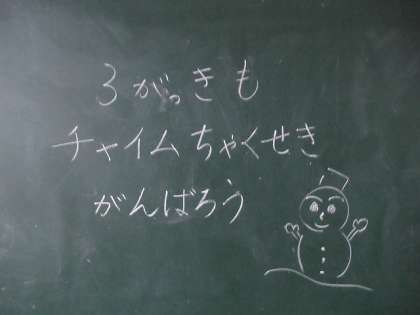 3がっきも
チャイムちゃくせき
がんばろう